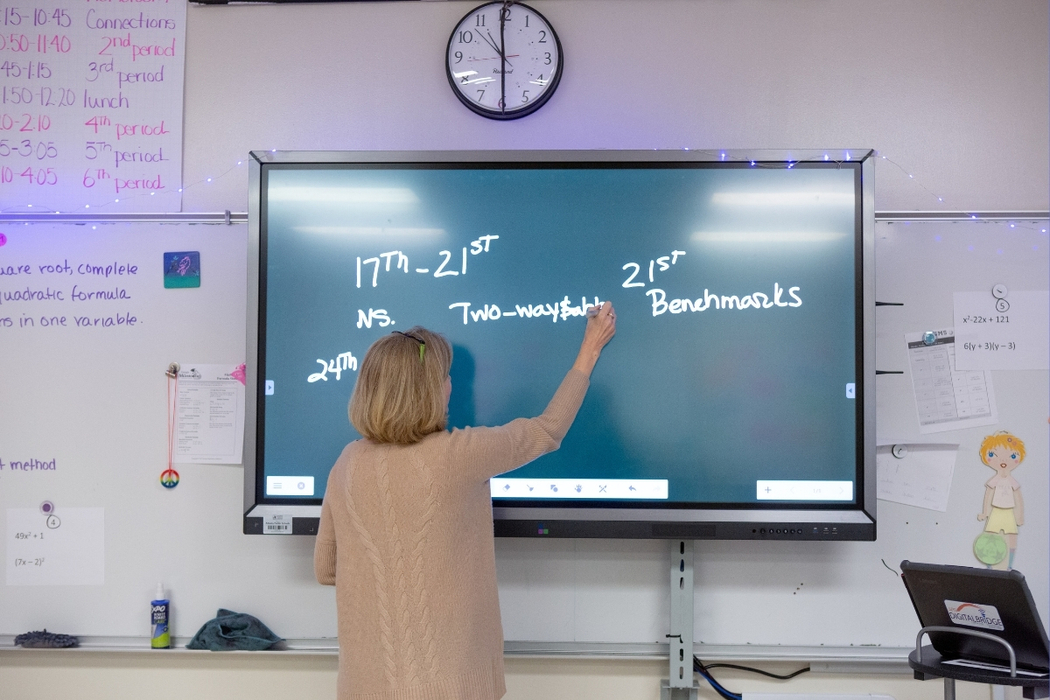 :15-10:45 Connections
0:50-11:40 2nd period
45-1:15 3rd period
1:50-12:20 lunch
0-2:10 4Th period
5-3:05 5Th period
10-4:05 6Th period
11 12 1
10 2
9 3
8 4
7 6 5
uare root, complete
quadratic formula
ns in one variable.
method
4
49x² + 1
(7x – 2)²
EXPO
17Th - 21ST
NS. Two-way
24Th
21ST
Benchmarks
5
x²-22x + 121
6(y + 3)(y – 3)
DIGITALBRIDGE